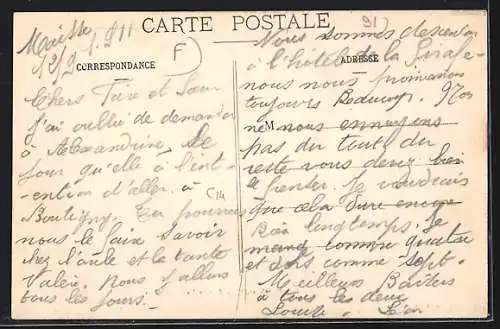 CARTE POSTALE
91
F
CORRESPONDANCE
ADRESSE
M
Maisse
12/9
Chers Frère et Sœur
J'ai oublié de demander
à Alexandrine le
jour qu'elle a l'int-
ention d'aller à
Boutigny. Tu pourras
nous le faire savoir
chez l'oncle et la tante
Valérie. Nous y allons
tous les jours.
C 14
Nous sommes descendus
à l'hôtel de la Girafe
nous nous promenons
toujours Beaucoup. Nous
ne nous ennuyons
pas du tout du
reste vous devez bien
le penser. Je voudrais
que cela dure encore
Bien longtemps. Je
mange comme quatre
et dors comme sept.
Meilleurs Baisers
à tous les deux
Louise